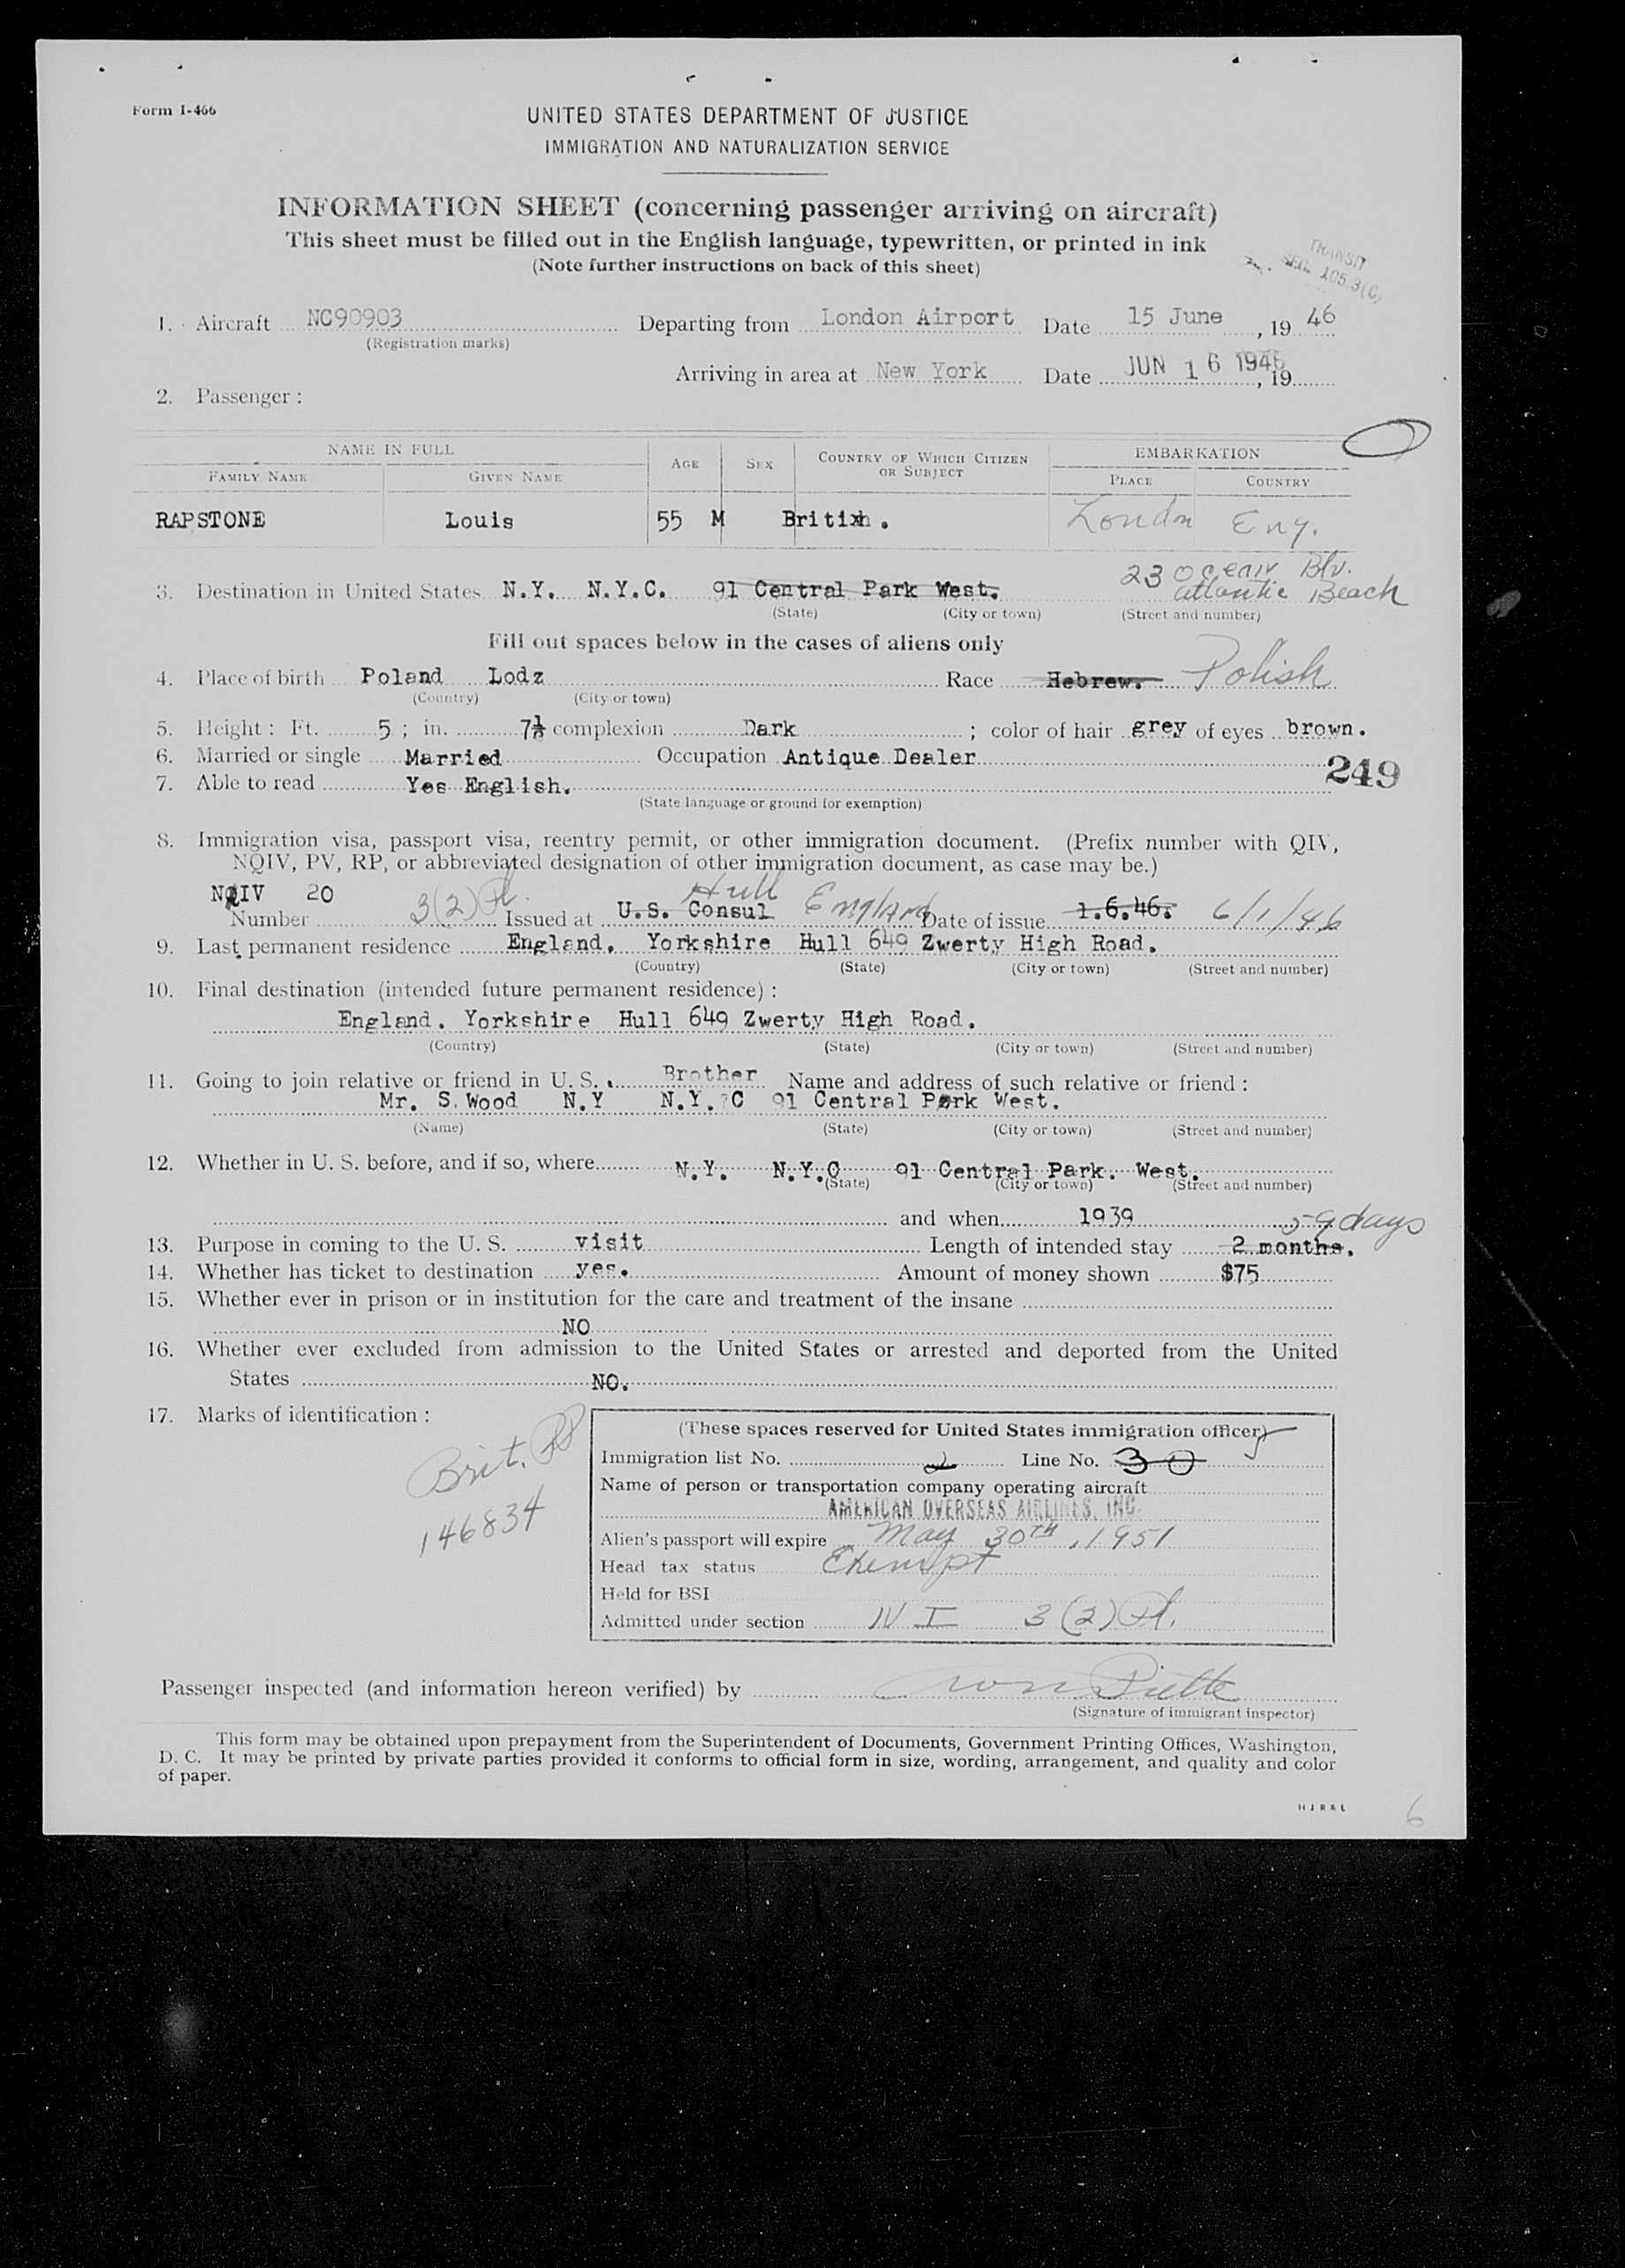 Form I-466
UNITED STATES DEPARTMENT OF JUSTICE
IMMIGRATION AND NATURALIZATION SERVICE
INFORMATION SHEET (concerning passenger arriving on aircraft)
This sheet must be filled out in the English language, typewritten, or printed in ink
(Note further instructions on back of this sheet)
TRANSIT
SEC. 105.3(C)
1. Aircraft NC90903 Departing from London Airport Date 15 June, 19 46
(Registration marks)
Arriving in area at New York Date JUN 16 1946, 19
2. Passenger :
NAME IN FULL AGE SEX COUNTRY OF WHICH CITIZEN OR SUBJECT EMBARKATION
FAMILY NAME GIVEN NAME PLACE COUNTRY
RAPSTONE Louis 55 M British. London Eng.
23 Ocean Blv.
Atlantic Beach
3. Destination in United States N.Y. N.Y.C. 91 Central Park West.
(State) (City or town) (Street and number)
Fill out spaces below in the cases of aliens only
4. Place of birth Poland Lodz Race Hebrew. Polish
(Country) (City or town)
5. Height : Ft. 5 ; in. 7½ complexion Dark ; color of hair grey of eyes brown.
6. Married or single Married Occupation Antique Dealer
249
7. Able to read Yes English.
(State language or ground for exemption)
8. Immigration visa, passport visa, reentry permit, or other immigration document. (Prefix number with QIV,
NQIV, PV, RP, or abbreviated designation of other immigration document, as case may be.)
NQIV 20 Hull
Number 3(2) Pl. Issued at U.S. Consul England Date of issue 1.6.46. 6/1/46
9. Last permanent residence England. Yorkshire Hull 649 Zwerty High Road.
(Country) (State) (City or town) (Street and number)
10. Final destination (intended future permanent residence) :
England. Yorkshire Hull 649 Zwerty High Road.
(Country) (State) (City or town) (Street and number)
11. Going to join relative or friend in U. S. Brother Name and address of such relative or friend :
Mr. S. Wood N.Y N.Y. C 91 Central Park West.
(Name) (State) (City or town) (Street and number)
12. Whether in U. S. before, and if so, where N.Y. N.Y.C 91 Central Park. West.
(State) (City or town) (Street and number)
and when 1939 59 days
13. Purpose in coming to the U. S. visit Length of intended stay 2 months.
14. Whether has ticket to destination yes. Amount of money shown $75
15. Whether ever in prison or in institution for the care and treatment of the insane
NO
16. Whether ever excluded from admission to the United States or arrested and deported from the United
States NO.
17. Marks of identification :
Brit. PP
146834
(These spaces reserved for United States immigration officer)
Immigration list No. 2 Line No. 30
Name of person or transportation company operating aircraft
AMERICAN OVERSEAS AIRLINES, INC.
Alien's passport will expire May 30TH, 1951
Head tax status Exempt
Held for BSI
Admitted under section IV I 3 (2) Pl.
Passenger inspected (and information hereon verified) by
(Signature of immigrant inspector)
This form may be obtained upon prepayment from the Superintendent of Documents, Government Printing Offices, Washington,
D. C. It may be printed by private parties provided it conforms to official form in size, wording, arrangement, and quality and color
of paper.
6